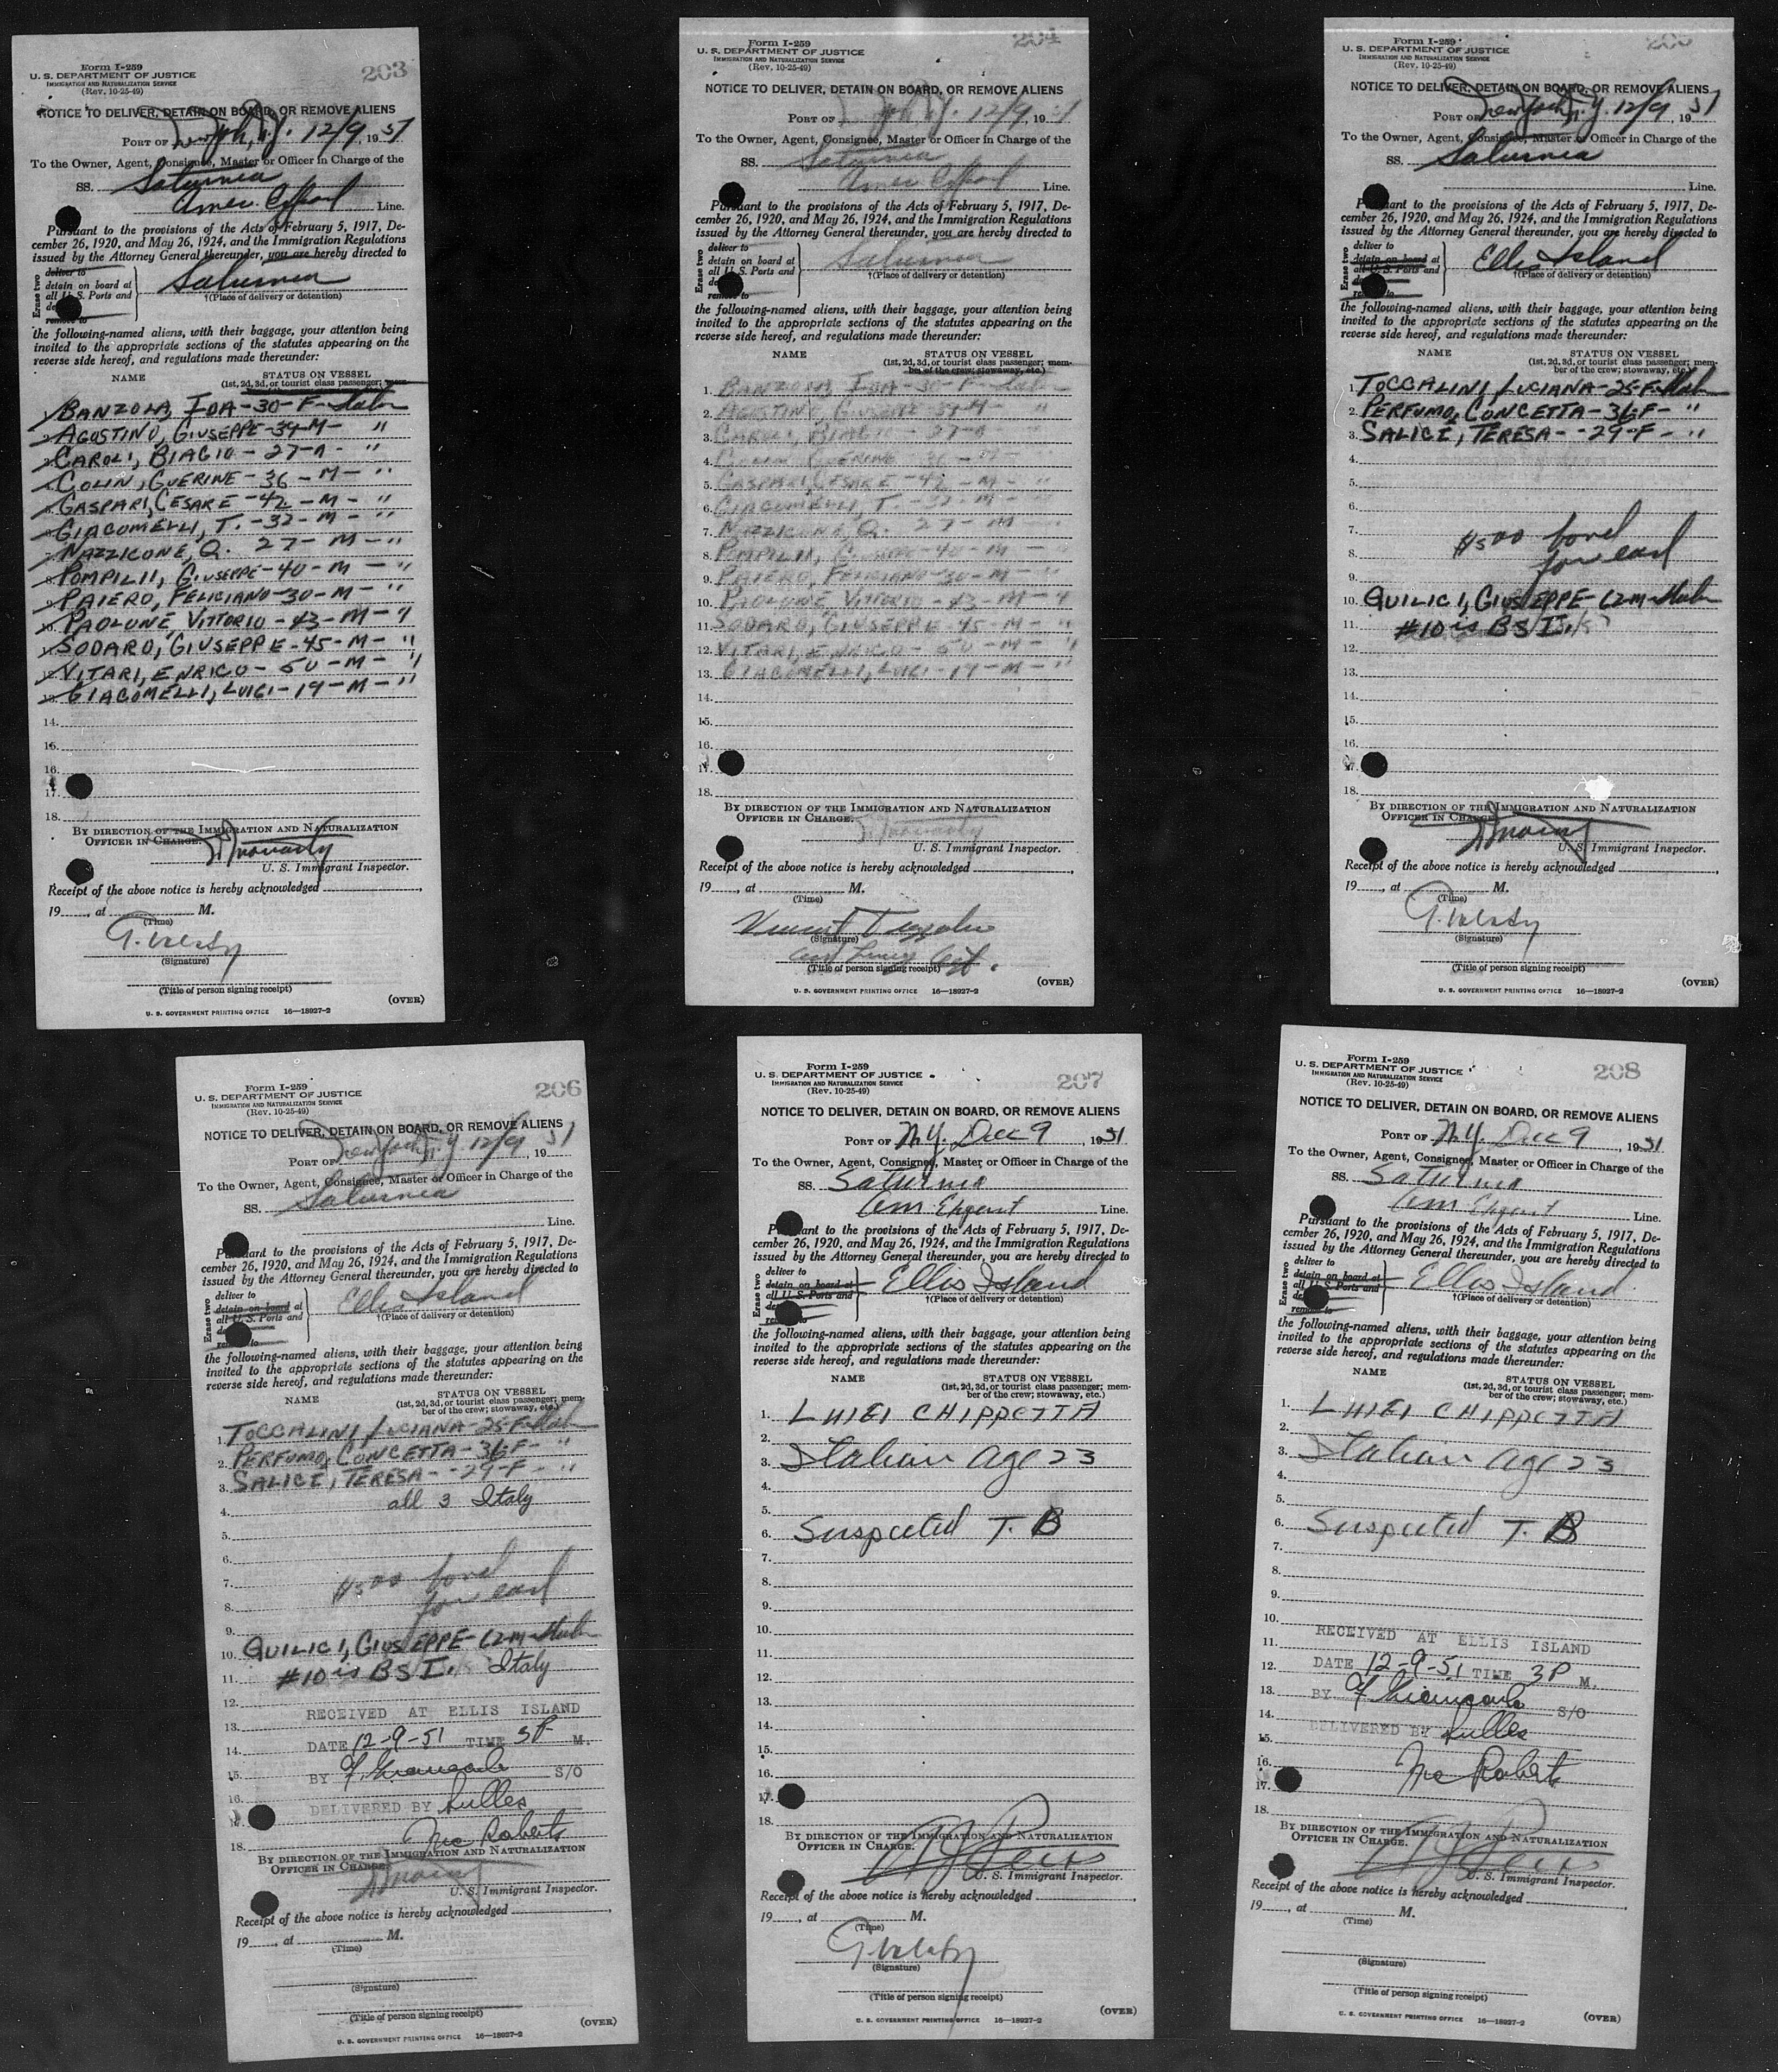 Form I-259
U. S. DEPARTMENT OF JUSTICE
IMMIGRATION AND NATURALIZATION SERVICE
(Rev. 10-25-49)
203
NOTICE TO DELIVER, DETAIN ON BOARD, OR REMOVE ALIENS
PORT OF New York, N.Y. 12/9, 1951
To the Owner, Agent, Consignee, Master or Officer in Charge of the
SS. Saturnia
Amer. Export Line.
Pursuant to the provisions of the Acts of February 5, 1917, De-
cember 26, 1920, and May 26, 1924, and the Immigration Regulations
issued by the Attorney General thereunder, you are hereby directed to
Erase two
deliver to
detain on board at
all U. S. Ports and
remove to
Saturnia
†(Place of delivery or detention)
the following-named aliens, with their baggage, your attention being
invited to the appropriate sections of the statutes appearing on the
reverse side hereof, and regulations made thereunder:
NAME STATUS ON VESSEL
(1st, 2d, 3d, or tourist class passenger; mem-
1. BANZOLA, IDA-30-F-Italn
2. AGOSTINO, GIUSEPPE-34-M- "
3. CAROLI, BIAGIO-27-M- "
4. COLIN, GUERINE-36-M- "
5. GASPARI, CESARE-42-M- "
6. GIACOMELLI, T.-32-M- "
7. NAZZICONE, Q. 27-M- "
8. POMPILII, GIUSEPPE-40-M- "
9. PAIERO, FELICIANO-30-M- "
10. PAOLUNE VITTORIO-43-M- "
11. SODARO, GIUSEPPE-45-M- "
12. VITARI, ENRICO-50-M- "
13. GIACOMELLI, LUIGI-19-M- "
14.
15.
16.
17.
18.
BY DIRECTION OF THE IMMIGRATION AND NATURALIZATION
OFFICER IN CHARGE.
U. S. Immigrant Inspector.
Receipt of the above notice is hereby acknowledged
19, at M.
(Time)
(Signature)
(Title of person signing receipt)
(OVER)
U. S. GOVERNMENT PRINTING OFFICE 16—18927-2
Form I-259
U. S. DEPARTMENT OF JUSTICE
IMMIGRATION AND NATURALIZATION SERVICE
(Rev. 10-25-49)
204
NOTICE TO DELIVER, DETAIN ON BOARD, OR REMOVE ALIENS
PORT OF New York, N.Y. 12/9, 1951
To the Owner, Agent, Consignee, Master or Officer in Charge of the
SS. Saturnia
Amer. Export Line.
Pursuant to the provisions of the Acts of February 5, 1917, De-
cember 26, 1920, and May 26, 1924, and the Immigration Regulations
issued by the Attorney General thereunder, you are hereby directed to
Erase two
deliver to
detain on board at
all U. S. Ports and
remove to
Saturnia
†(Place of delivery or detention)
the following-named aliens, with their baggage, your attention being
invited to the appropriate sections of the statutes appearing on the
reverse side hereof, and regulations made thereunder:
NAME STATUS ON VESSEL
(1st, 2d, 3d, or tourist class passenger; mem-
ber of the crew; stowaway, etc.)
1. BANZOLA, IDA-30-F-Italn
2. AGOSTINO, GIUSEPPE 34-M- "
3. CAROLI, BIAGIO-27-M "
4. COLIN, GUERINE 36-M-
5. GASPARI, CESARE-42-M- "
6. GIACOMELLI, T.-32-M- "
7. NAZZICONE, Q. 27-M "
8. POMPILII, GIUSEPPE-40-M "
9. PAIERO, FELICIANO-30-M- "
10. PAOLUNE VITTORIO-43-M- "
11. SODARO, GIUSEPPE 45-M- "
12. VITARI, ENRICO-50-M- "
13. GIACOMELLI, LUIGI-19-M- "
14.
15.
16.
17.
18.
BY DIRECTION OF THE IMMIGRATION AND NATURALIZATION
OFFICER IN CHARGE.
U. S. Immigrant Inspector.
Receipt of the above notice is hereby acknowledged
19, at M.
(Time)
Vincent
(Signature)
(Title of person signing receipt)
(OVER)
U. S. GOVERNMENT PRINTING OFFICE 16—18927-2
Form I-259
U. S. DEPARTMENT OF JUSTICE
IMMIGRATION AND NATURALIZATION SERVICE
(Rev. 10-25-49)
NOTICE TO DELIVER, DETAIN ON BOARD, OR REMOVE ALIENS
PORT OF New York, N.Y. 12/9 1951
To the Owner, Agent, Consignee, Master or Officer in Charge of the
SS. Saturnia
Line.
Pursuant to the provisions of the Acts of February 5, 1917, De-
cember 26, 1920, and May 26, 1924, and the Immigration Regulations
issued by the Attorney General thereunder, you are hereby directed to
Erase two
deliver to
detain on board at
all U. S. Ports and
remove to
Ellis Island
†(Place of delivery or detention)
the following-named aliens, with their baggage, your attention being
invited to the appropriate sections of the statutes appearing on the
reverse side hereof, and regulations made thereunder:
NAME STATUS ON VESSEL
(1st, 2d, 3d, or tourist class passenger; mem-
ber of the crew; stowaway, etc.)
1. TOCCALINI, LUCIANA-25-F-Italn
2. PERFUMO, CONCETTA-36-F- "
3. SALICE, TERESA-29-F- "
4.
5.
6.
7.
$500 bond
8.
for each
9.
10. QUILICI, GIUSEPPE-62-M-Italn
11. #10 is BSI.
12.
13.
14.
15.
16.
17.
18.
BY DIRECTION OF THE IMMIGRATION AND NATURALIZATION
OFFICER IN CHARGE.
U. S. Immigrant Inspector.
Receipt of the above notice is hereby acknowledged
19, at M.
(Time)
(Signature)
(Title of person signing receipt)
(OVER)
U. S. GOVERNMENT PRINTING OFFICE 16—18927-2
Form I-259
U. S. DEPARTMENT OF JUSTICE
IMMIGRATION AND NATURALIZATION SERVICE
(Rev. 10-25-49)
206
NOTICE TO DELIVER, DETAIN ON BOARD, OR REMOVE ALIENS
PORT OF New York, N.Y. 12/9, 1951
To the Owner, Agent, Consignee, Master or Officer in Charge of the
SS. Saturnia
Line.
Pursuant to the provisions of the Acts of February 5, 1917, De-
cember 26, 1920, and May 26, 1924, and the Immigration Regulations
issued by the Attorney General thereunder, you are hereby directed to
Erase two
deliver to
detain on board at
all U. S. Ports and
Ellis Island
†(Place of delivery or detention)
the following-named aliens, with their baggage, your attention being
invited to the appropriate sections of the statutes appearing on the
reverse side hereof, and regulations made thereunder:
NAME STATUS ON VESSEL
(1st, 2d, 3d, or tourist class passenger; mem-
ber of the crew; stowaway, etc.)
1. TOCCALINI, LUCIANA-25-F-Italn
2. PERFUMO, CONCETTA-36-F- "
3. SALICE, TERESA-29-F- "
all 3 Italy
4.
5.
6.
7. $500 bond
for each
8.
9.
10. QUILICI, GIUSEPPE-62-M-Italn
11. #10 is BSI. Italy
12.
RECEIVED AT ELLIS ISLAND
13.
14. DATE 12-9-51 TIME 3P M.
15. BY S/O
16.
DELIVERED BY Lulles
17.
18. McRoberts
BY DIRECTION OF THE IMMIGRATION AND NATURALIZATION
OFFICER IN CHARGE.
U. S. Immigrant Inspector.
Receipt of the above notice is hereby acknowledged
19, at M.
(Time)
(Signature)
(Title of person signing receipt)
(OVER)
U. S. GOVERNMENT PRINTING OFFICE 16—18927-2
Form I-259
U. S. DEPARTMENT OF JUSTICE
IMMIGRATION AND NATURALIZATION SERVICE
(Rev. 10-25-49)
207
NOTICE TO DELIVER, DETAIN ON BOARD, OR REMOVE ALIENS
PORT OF N.Y. Dec 9, 1951
To the Owner, Agent, Consignee, Master or Officer in Charge of the
SS. Saturnia
Am. Export Line.
Pursuant to the provisions of the Acts of February 5, 1917, De-
cember 26, 1920, and May 26, 1924, and the Immigration Regulations
issued by the Attorney General thereunder, you are hereby directed to
Erase two
deliver to
detain on board at
all U. S. Ports and
Ellis Island
†(Place of delivery or detention)
the following-named aliens, with their baggage, your attention being
invited to the appropriate sections of the statutes appearing on the
reverse side hereof, and regulations made thereunder:
NAME STATUS ON VESSEL
(1st, 2d, 3d, or tourist class passenger; mem-
ber of the crew; stowaway, etc.)
1. LUIGI CHIPPETTA
2.
3. Italian age 23
4.
5.
6. Suspected T. B
7.
8.
9.
10.
11.
12.
13.
14.
15.
16.
17.
18.
BY DIRECTION OF THE IMMIGRATION AND NATURALIZATION
OFFICER IN CHARGE.
U. S. Immigrant Inspector.
Receipt of the above notice is hereby acknowledged
19, at M.
(Time)
(Signature)
(Title of person signing receipt)
(OVER)
U. S. GOVERNMENT PRINTING OFFICE 16—18927-2
Form I-259
U. S. DEPARTMENT OF JUSTICE
IMMIGRATION AND NATURALIZATION SERVICE
(Rev. 10-25-49)
208
NOTICE TO DELIVER, DETAIN ON BOARD, OR REMOVE ALIENS
PORT OF N.Y. Dec 9, 1951
To the Owner, Agent, Consignee, Master or Officer in Charge of the
SS. Saturnia
Am. Export Line.
Pursuant to the provisions of the Acts of February 5, 1917, De-
cember 26, 1920, and May 26, 1924, and the Immigration Regulations
issued by the Attorney General thereunder, you are hereby directed to
Erase two
deliver to
detain on board at
all U. S. Ports and
remove to
Ellis Island
†(Place of delivery or detention)
the following-named aliens, with their baggage, your attention being
invited to the appropriate sections of the statutes appearing on the
reverse side hereof, and regulations made thereunder:
NAME STATUS ON VESSEL
(1st, 2d, 3d, or tourist class passenger; mem-
ber of the crew; stowaway, etc.)
1. LUIGI CHIPPETTA
2.
3. Italian age 23
4.
5.
6. Suspected T. B
7.
8.
9.
10.
11. RECEIVED AT ELLIS ISLAND
12. DATE 12-9-51 TIME 3P M.
13. BY S/O
14.
DELIVERED BY Lulles
15.
16. McRoberts
17.
18.
BY DIRECTION OF THE IMMIGRATION AND NATURALIZATION
OFFICER IN CHARGE.
U. S. Immigrant Inspector.
Receipt of the above notice is hereby acknowledged
19, at M.
(Time)
(Signature)
(Title of person signing receipt)
(OVER)
U. S. GOVERNMENT PRINTING OFFICE 16—18927-2